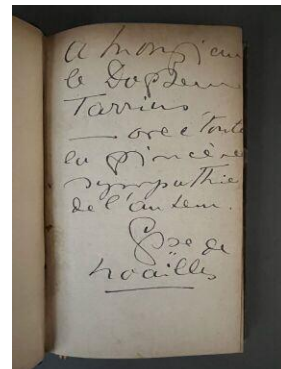 A Monsieur
le Docteur
Tarrius,
— avec toute
la sincère
sympathie
de l'auteur.
Csse de
Noailles